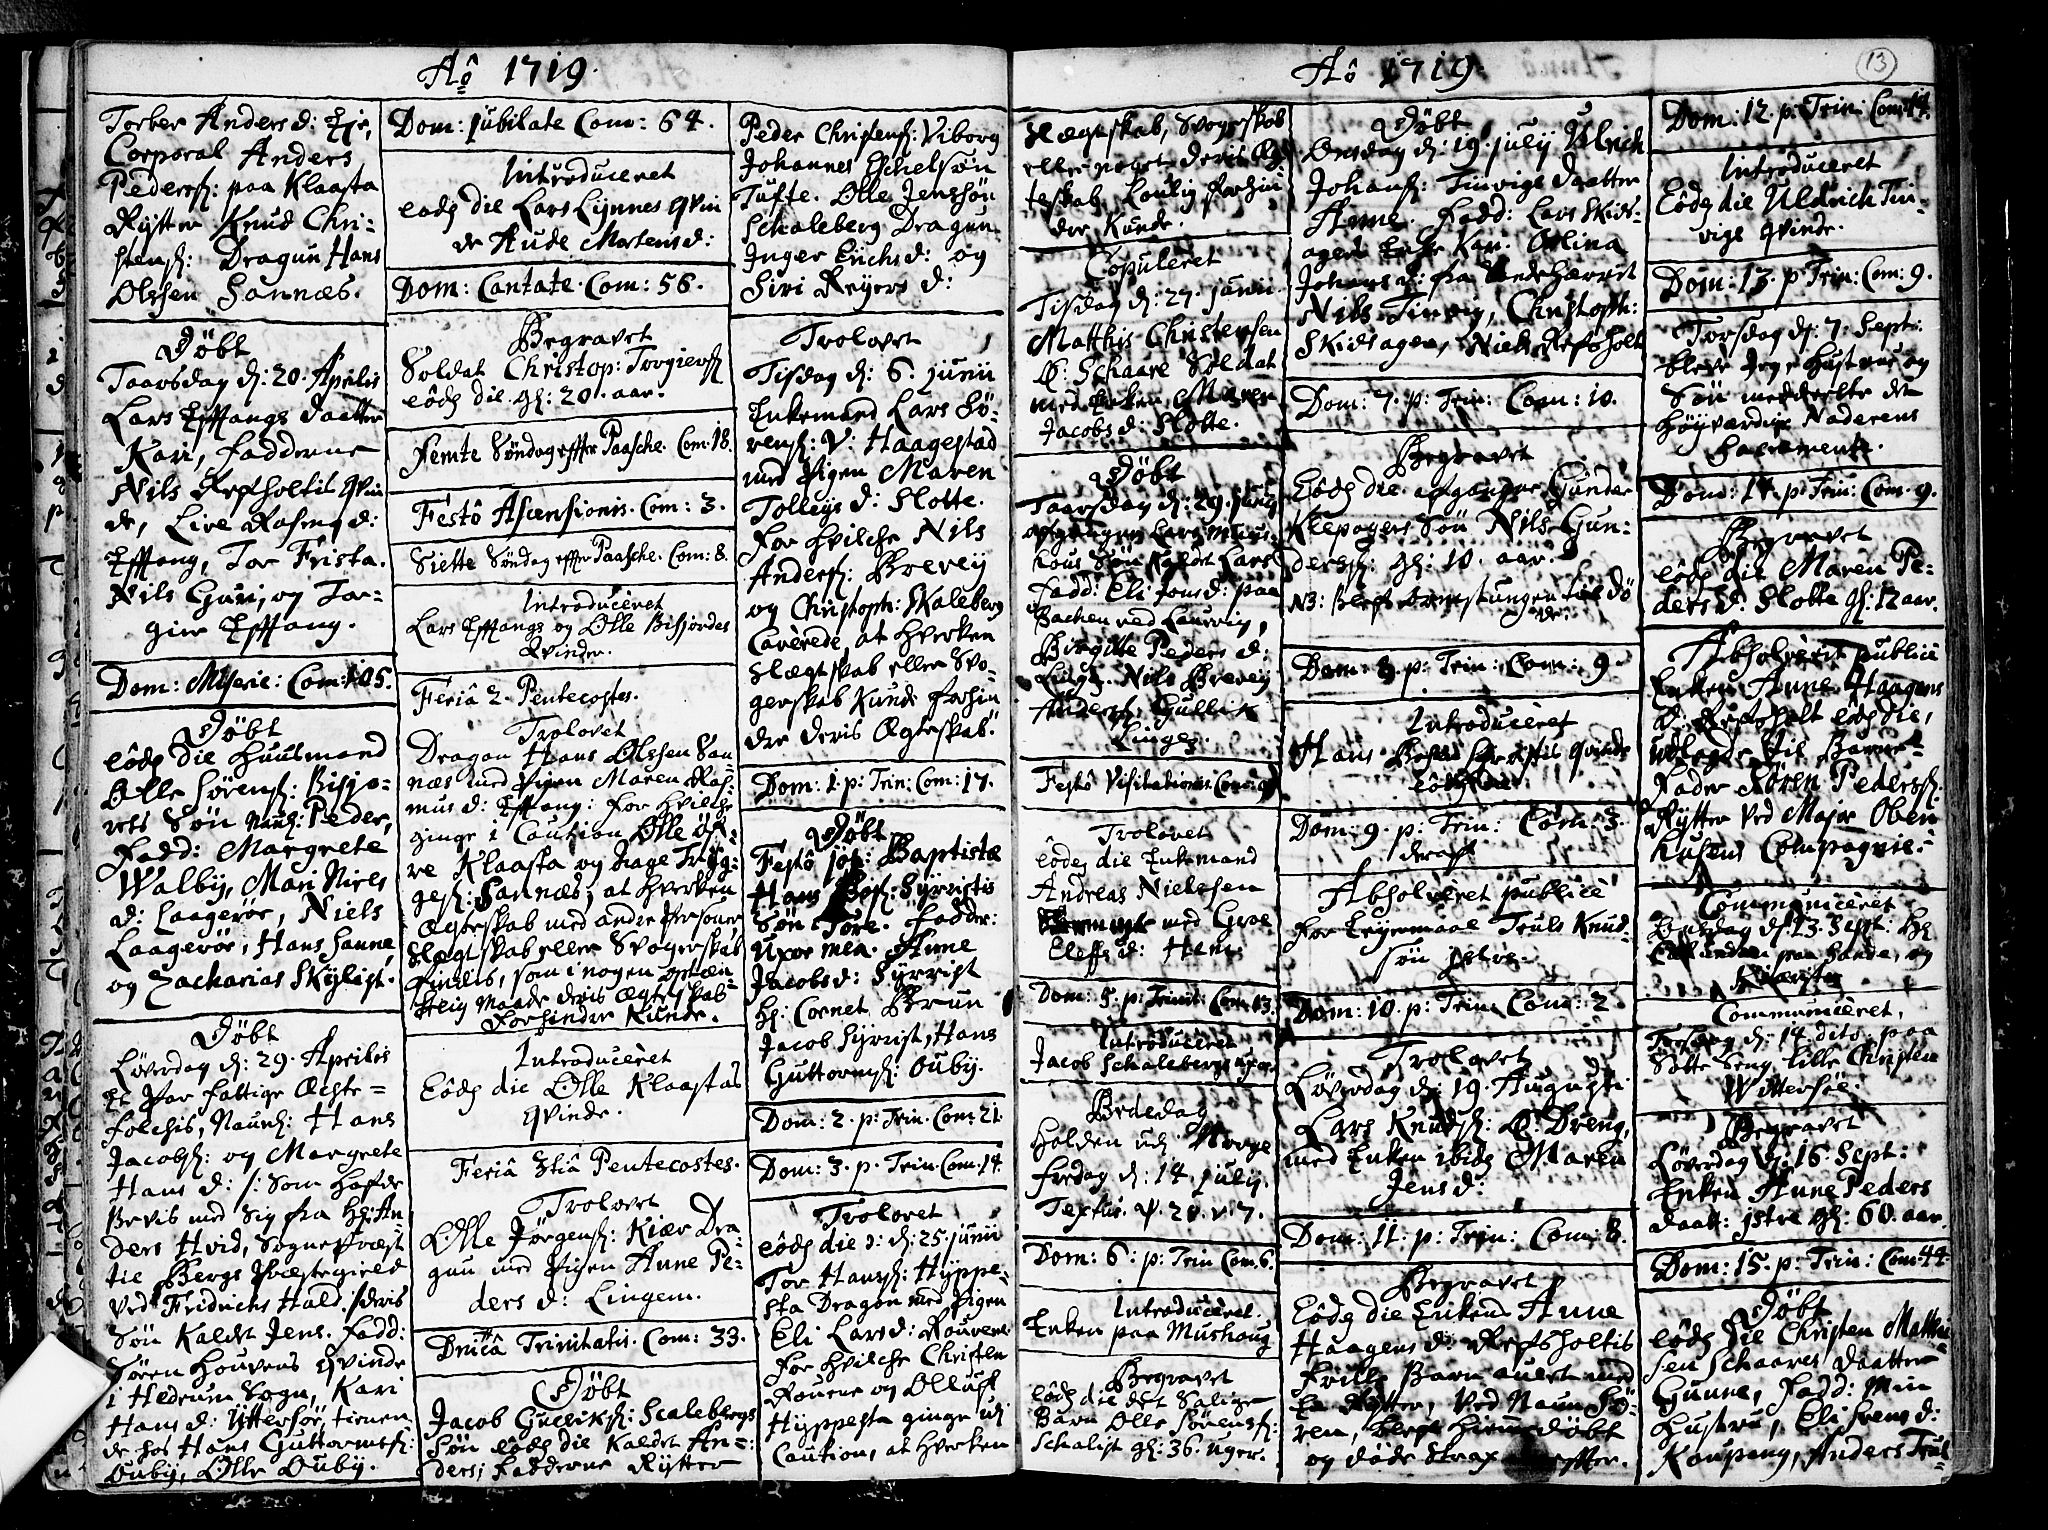 Aô 1719.
Torber Anders d: Eje,
Corporal Anders
Peders: paa Klaasta
Rytter Knud Chri-
stens: Dragun Hans
Olssen Sannæs.
Døbt
Taarsdag d: 20. Aprilis
Lars Effangs Daatter
Kari, Fadderne
Nils Refsholtis Qvin
de, Live Rasmus d:
Effang, Tor Frista.
Nils Guri, og Tor-
gier Effang.
Dom: Miseric: Com: 105.
Døbt
eôd die Huusmand
Olle Sørens: Bisjo-
rets Søn Naunl: Peder,
Fadd: Margrete
Walby, Mari Niels
d: Laagerøe, Niels
Laagerøe, Hans Sanne,
og Zacharias Skylist.
Døbt
Løverdag d: 29. Aprilis
Et Par fattige Ægte-
folchis, Naunl: Hans
Jacobs: og Margrete
Hans d: /: som hafde
Bevis med sig fra Hr: An-
ders Hvid, Sognepræst
til Bergs Præstegield
ved Fridrichs Hald :/ deris
Søn Kaldet Jens. Fadd:
Søren Houvens Qvinde
i Hedrum Sogn, Kari
Hans d: Yttersøe, tienen
de hos Hans Guttorms:
Ouby, Olle Ouby.
Dom: Jubilate Com: 64.
Introduceret
eôd die Lars Lynnes Qvin
de Aude Mortens d:
Dom: Cantate. Com: 56.
Begravet
Soldat Christop: Torgiers:
eôd die. gl: 20. aar.
Femte Søndag effter Paasche. Com: 18.
Festô Ascensionis. Com: 3.
Siette Søndag effter Paasche. Com: 8.
Introduceret
Lars Effangs og Olle Bisjordes
Qvinder.
Feriâ 2. Pentecostes.
Trolovet
Dragon Hans Olssen San
næs med Pigen Maren Ras-
mus d: Effang: For hvilche
ginge i Caution Olle Øf-
re Klaasta og Hage Tryg-
ges: Sannæs, at hverken
Ægteskab med andre Personer
Slegtskab eller Svogerskab
findis, som i nogen
Maade deris Ægteskab
forhindre Kunde.
Introduceret
Eôd die Olle Klaastas
Qvinde.
Feriâ 3tiâ Pentecostes.
Trolovet
Olle Jørgens: Kiær Dra-
gun med Pigen Anne Pe-
ders d: Lingem.
Dnicâ Trinitatis. Com: 33.
Døbt
Jacob Gulliks: Scalebergs
Søn eôd die Kaldet An-
ders; Fadderne Rytter
Peder Christens: Viborg
Johannes Eschelsøn
Tufte. Olle Jenssøn
Schaleberg Dragun
Inger Erichs d: og
Siri Reyers d:
Trolovet
Tisdag d: 6. Junii
Enkemand Lars Sø-
rens: V: Haagestad
med Pigen Maren
Tolleys d: Slotte.
For hvilche Nils
Anders: Brevey
og Christoph: Skaleberg
Caverede at hverken
Slægtskab eller Svo-
gerskab Kunde forhin
dre deris Ægteskab.
Dom: 1. p: Trin: Com: 17.
Døbt
Festô joh: Baptistæ
Hans Boes: Syrristis
Søn Tore. Fadder:
Uxor mea. Anne
Jacobs d: Syrrist
Hr: Cornet Brun
Jacob Syrrist, Hans
Guttorms: Ouby.
Dom: 2. p: Trin. Com: 21.
Dom: 3. p. Trin. Com: 14.
Trolovet
eôd die d: 25. Junii
Tor Hans: Hyppe-
sta Dragon med Pigen
Eli Lars d: Rouvene
For hvilche Christen
Rouene og Olluf
Hyppesta ginge udi
Caution, at hverken
Aô 1719.
13
Slægtskab, Svogerskab
eller noget deris Æg
teskab Loulig forhin
dre Kunde.
Copuleret
Tisdag d: 27. Junii
Matthis Christensen
Ø: Schaare Soldat
med Enken Maren
Jacobs d: Slotte.
Døbt
Taarsdag d: 29. Junii
afgangen Lars Mus-
hous Søn Kaldet Lars
Fadd: Eli Jons d: paa
Bachen ved Laurvig,
Birgitte Peders d:
Nils Brevey
Anders: Gullik
Linge.
Festô Visitationis Com: 9
Trolovet
eôd die Enkemand
Andreas Nielssen
med Groe
Eleffs d: Hem.
Dom: 5. p: Trinit: Com. 13.
Introduceret
Jacob Schalebergs Uxor.
Bededag
Holden udi Norge
fredag d: 14 july.
Textus. ψ. 28. v. 7.
Dom: 6. p: Trin Com. 6.
Introduceret.
Enken paa Mushoug
Begravet
eôd die det Salige
Barn Olle Sørens:
Schalist gl: 36. uger.
Døbt
Onsdag d: 19. july Ulrich
Johans: Tinvigs Daatter
Anne. Fadd: Lars Skids-
agers Enke Kari. Oelina
Johans d: fra
Nils Tinvig, Christoph:
Skidsagen, Niels Refsholt
Dom: 7. p: Trin: Com: 10.
Begravet
Eôd die. afgangne Gunder
Klepagers Søn Nils Gun-
ders: gl: 10. aar.
NB: Blef til dø
de.
Dom: 8. p: Trin: Com: 9.
Introduceret
Hans Boesen Syrristis Qvinde
Eôd die
Dom: 9. p: Trin: Com: 3.
Absolveret publicè
for Leyermaal Truls Knud-
søn Istre.
Dom: 10. p: Trin. Com: 2
Trolovet
Løverdag d: 19. Augusti
Lars Knuds: Ø: Dreng,
med Enken ibid Maren
Jens d:
Dom: 11. p: Trin: Com: 8.
Begravet
Eôd die Enken Anne
Haagens d: Refsholtis
Frille Barn aulet med
En Rytter, ved Naun Sø-
ren, blef hiemmedøbt
og døde Strax effter.
Dom: 12. p: Trin: Com: 14.
Introduceret
Eôd die Uldrich Tin-
vigs Qvinde.
Dom: 13. p Trin: Com: 9.
Torsdag d: 7. Sept:
blev Jeg, Hustrue og
Søn meddeelte det
Høyværdige Nadverens
Sacramente.
Dom: 14. p: Trin: Com. 9.
Begravet
eôd die Maren Pe-
ders d: Slotte gl: 12 aar.
Absolverit publicè
Enken Anne Haagens
d: Refsholt eôd die,
udlagde til Barne-
Fader Søren Peders:
Rytter ved Major Oben
husens Compagnie.
Communiceret
Onsdag d: 13. Sept: Hr
paa Sande, og
Communiceret,
Torsdag d: 14 dito. paa
Sotte Seng lille Christen
Wittersøe.
Begravet
Løverdag d: 16. Sept:
Enken Anne Peders
Daatt: Istre gl: 60. aar.
Dom: 15. p: Trin: Com: 44.
Døbt
eôd die Christen Matthi
sen Schaares Daatter
Gunne, Fadd: Min
Hustru, Eli Svens d:
Kaupang, Anders Trul-